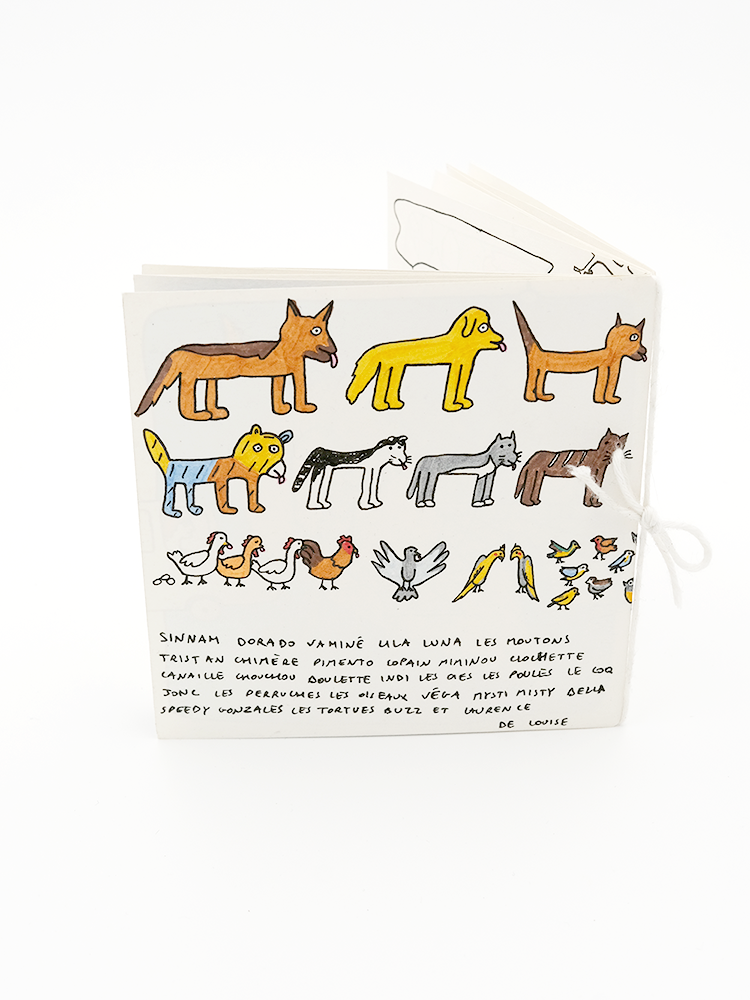 SINNAM DORADO VAMINÉ LILA LUNA LES MOUTONS
TRISTAN CHIMÈRE PIMENTO COPAIN MIMINOU CLOCHETTE
CANAILLE CHOUCHOU BOULETTE INDI LES OIES LES POULES LE COQ
JONC LES PERRUCHES LES OISEAUX VÉGA MYSTI MISTY BELLA
SPEEDY GONZALES LES TORTUES BUZZ ET LAURENCE
DE LOUISE